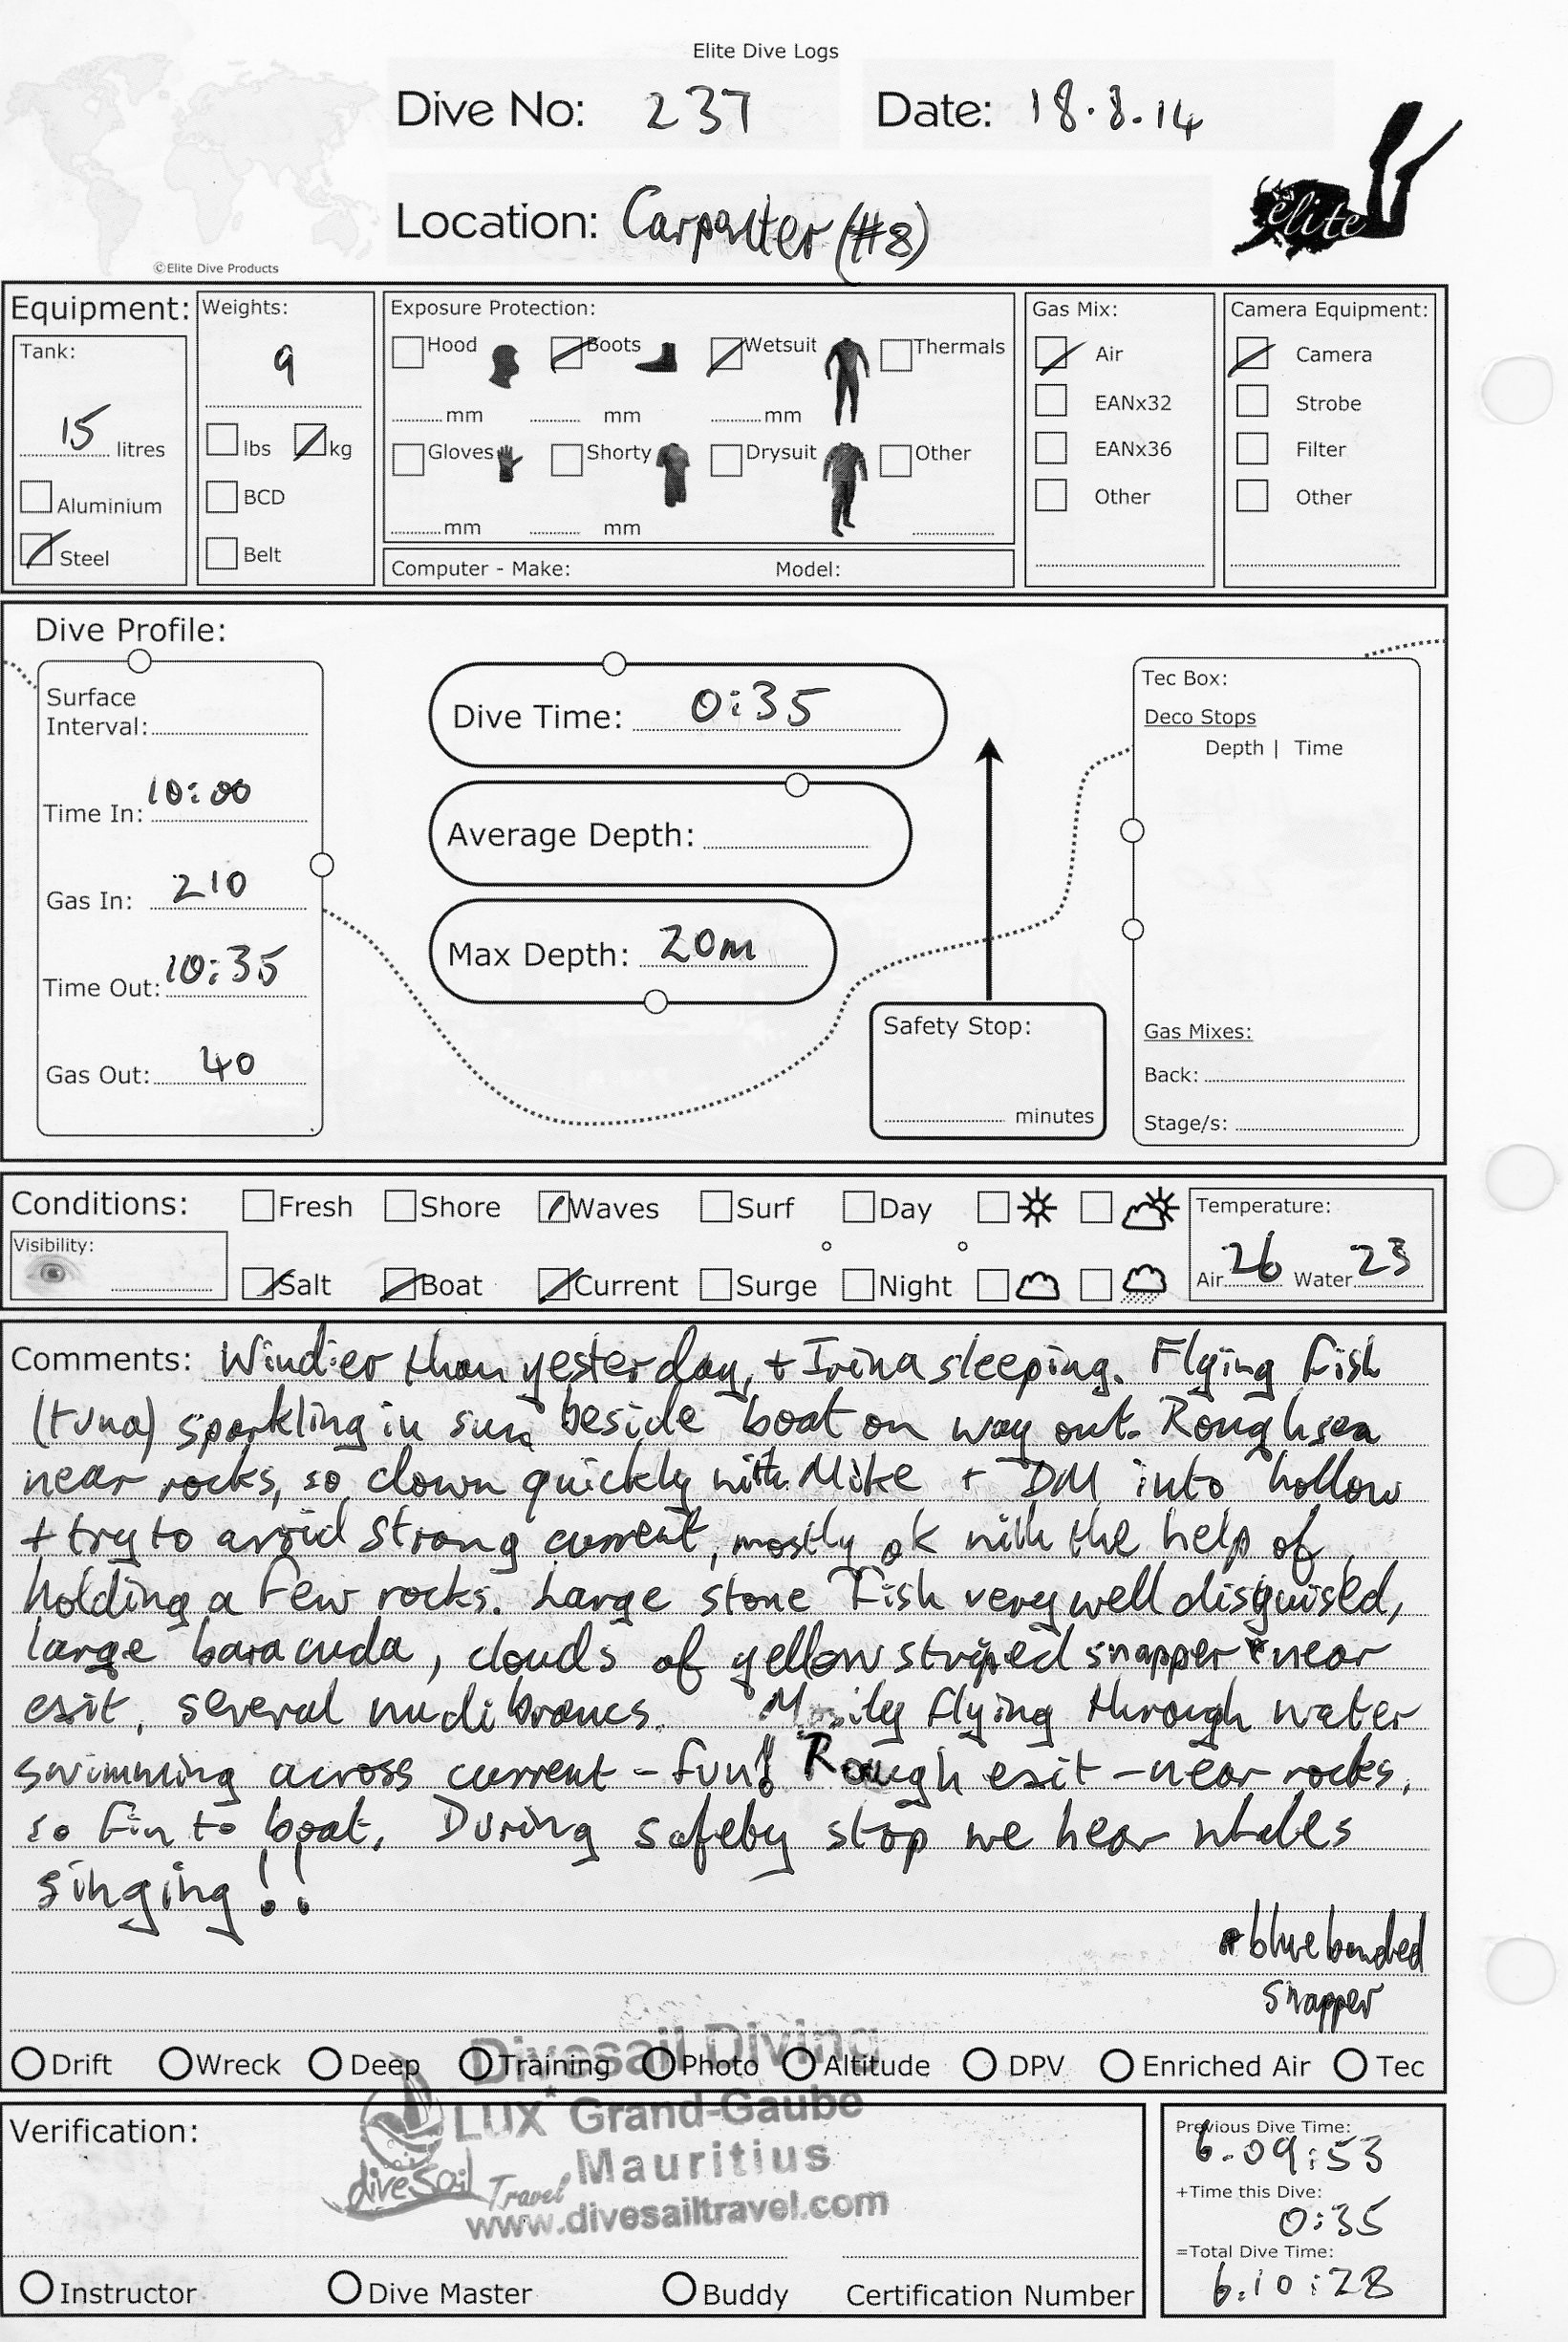 Elite Dive Logs
Dive No: 237 Date: 18.8.14
Location: Carpenter (#8)
©Elite Dive Products
elite
Equipment:
Tank:
15 litres
Aluminium
Steel
Weights:
9
lbs kg
BCD
Belt
Exposure Protection:
Hood Boots Wetsuit Thermals
mm mm mm
Gloves Shorty Drysuit Other
mm mm
Computer - Make: Model:
Gas Mix:
Air
EANx32
EANx36
Other
Camera Equipment:
Camera
Strobe
Filter
Other
Dive Profile:
Surface
Interval:
Time In: 10:00
Gas In: 210
Time Out: 10:35
Gas Out: 40
Dive Time: 0:35
Average Depth:
Max Depth: 20m
Safety Stop:
minutes
Tec Box:
Deco Stops
Depth | Time
Gas Mixes:
Back:
Stage/s:
Conditions: Fresh Shore Waves Surf Day
Visibility:
Salt Boat Current Surge Night
Temperature:
Air 26 Water 23
Comments: Windier than yesterday, + Irina sleeping. Flying Fish
(tuna) sparkling in sun beside boat on way out. Rough sea
near rocks, so down quickly with Mike + DM into hollow
+ try to avoid strong current, mostly ok with the help of
holding a few rocks. Large stone fish very well disguised,
large baracuda, clouds of yellow striped snapper * near
exit, several nudibrancs. Mostly flying through water
swimming across current - fun! Rough exit - near rocks,
so fin to boat. During safety stop we hear whales
singing!!
* blue banded
snapper
Drift Wreck Deep Training Photo Altitude DPV Enriched Air Tec
Divesail Diving
LUX* Grand-Gaube
Mauritius
diveSail Travel
www.divesailtravel.com
Verification:
Instructor Dive Master Buddy Certification Number
Previous Dive Time:
6.09:53
+Time this Dive:
0:35
=Total Dive Time:
6.10:28